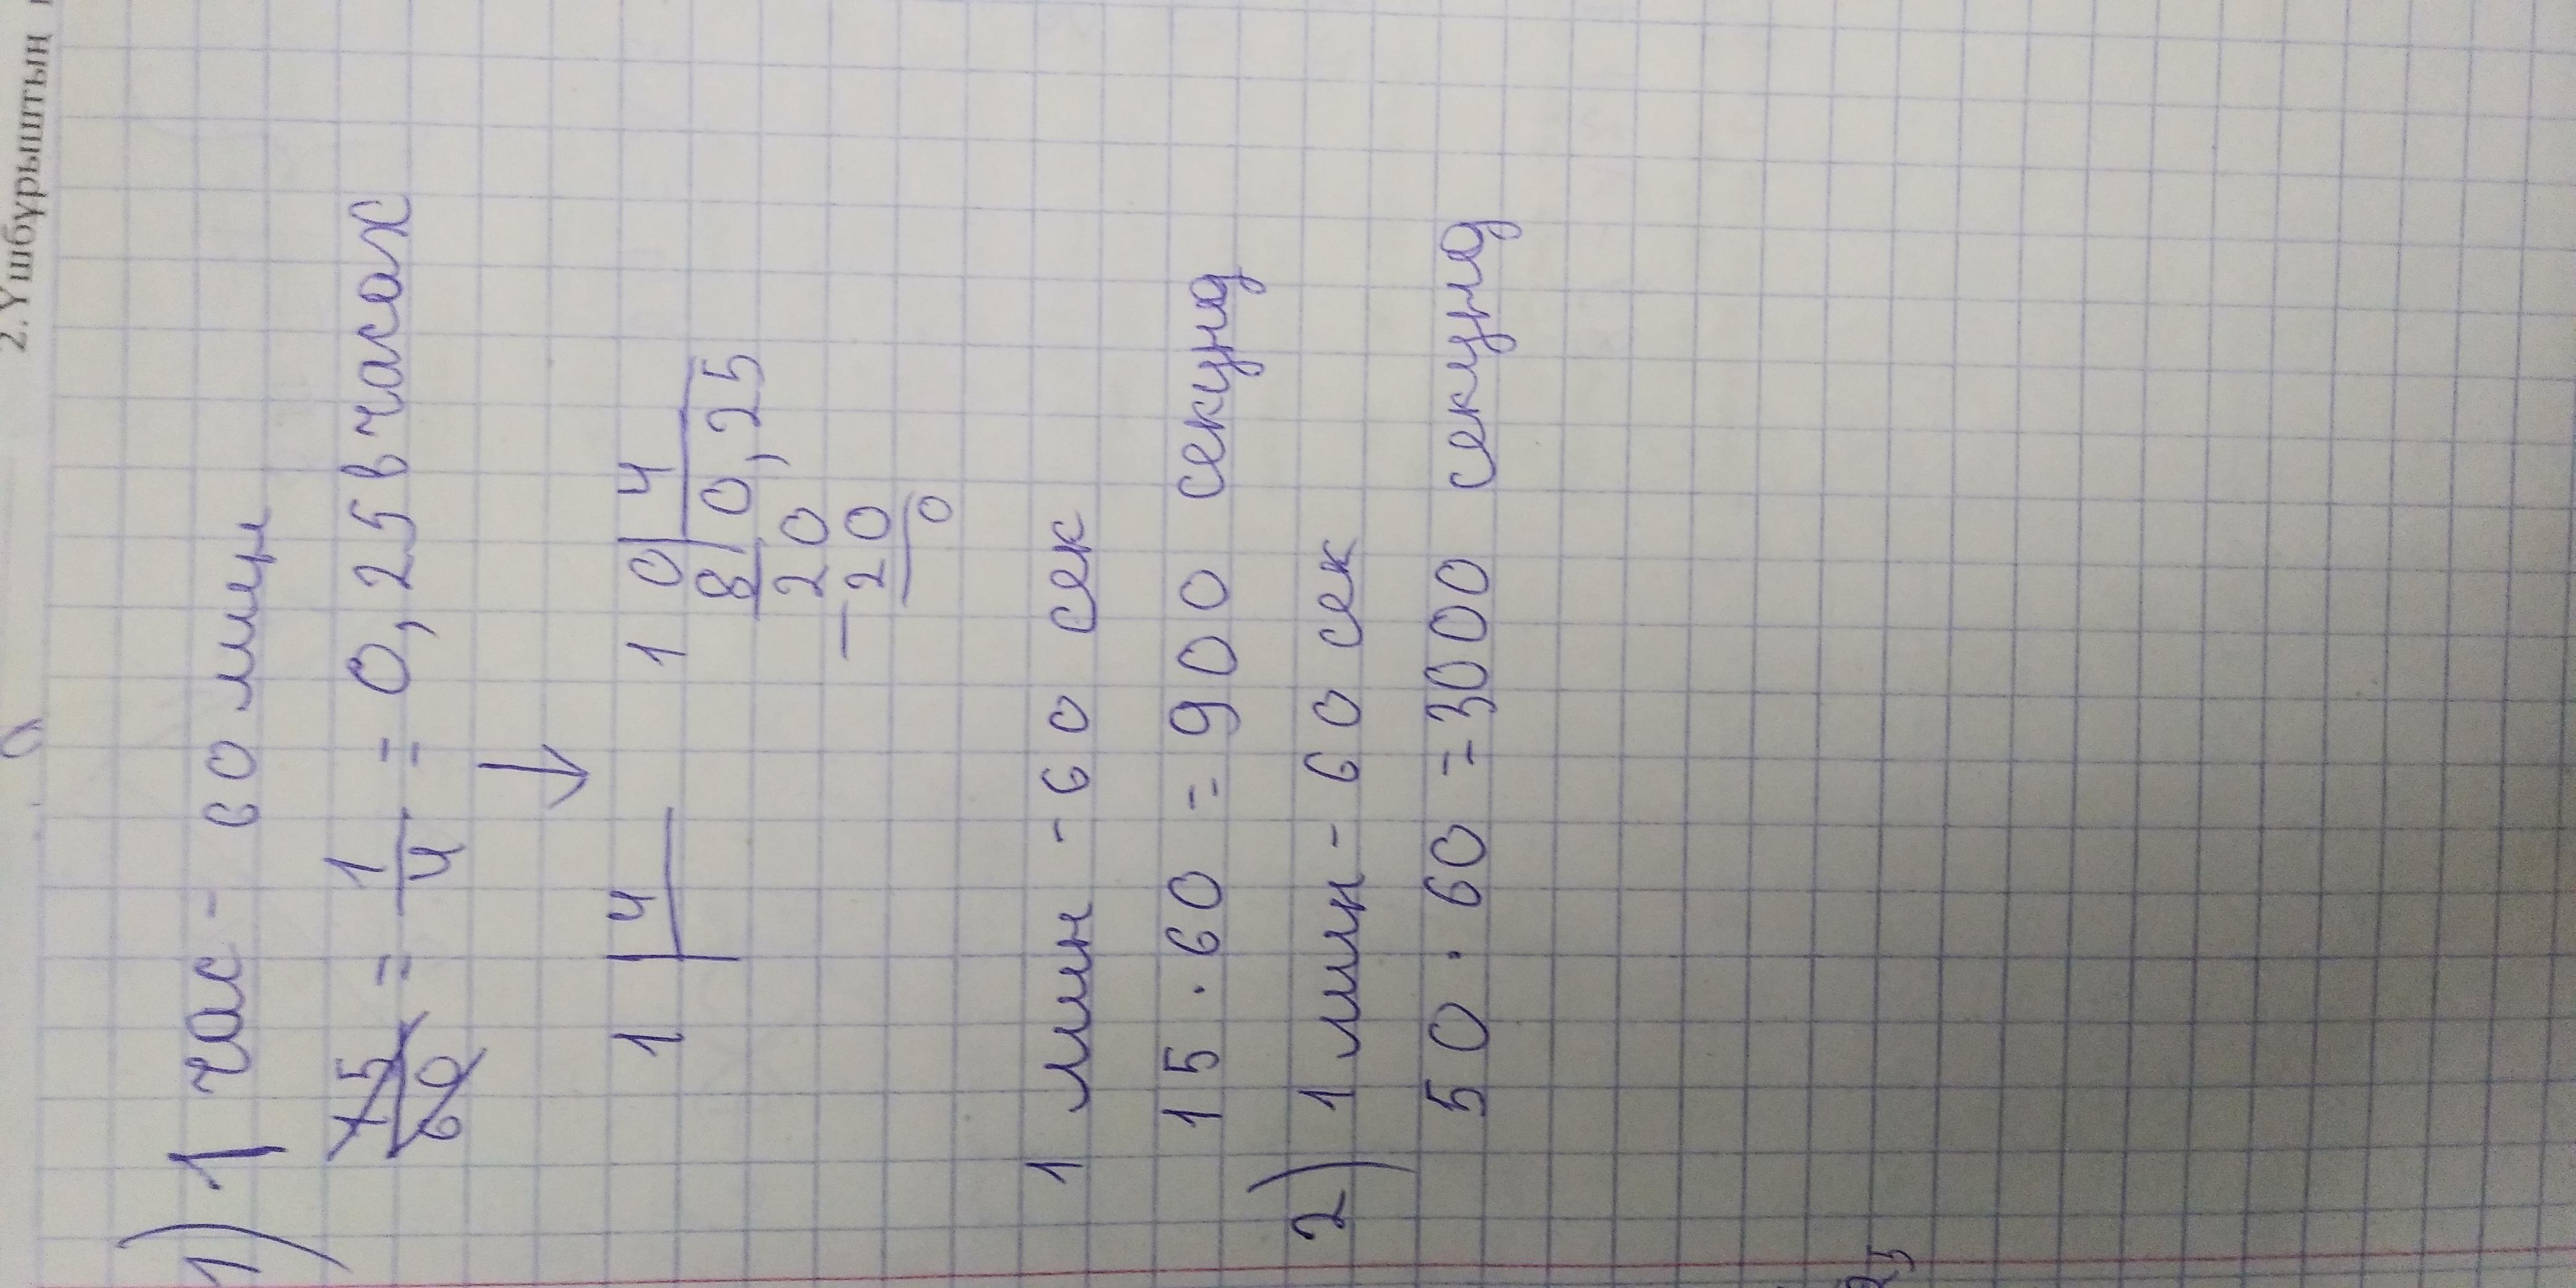 2. Үшбұрыштың
1) 1 час - 60 мин
15/60 = 1/4 = 0,25 в часах
↓
1 | 4    10 | 4
8 | 0,25
20
-20
0
1 мин - 60 сек
15 · 60 = 900 секунд
2) 1 мин - 60 сек
50 · 60 = 3000 секунд
25